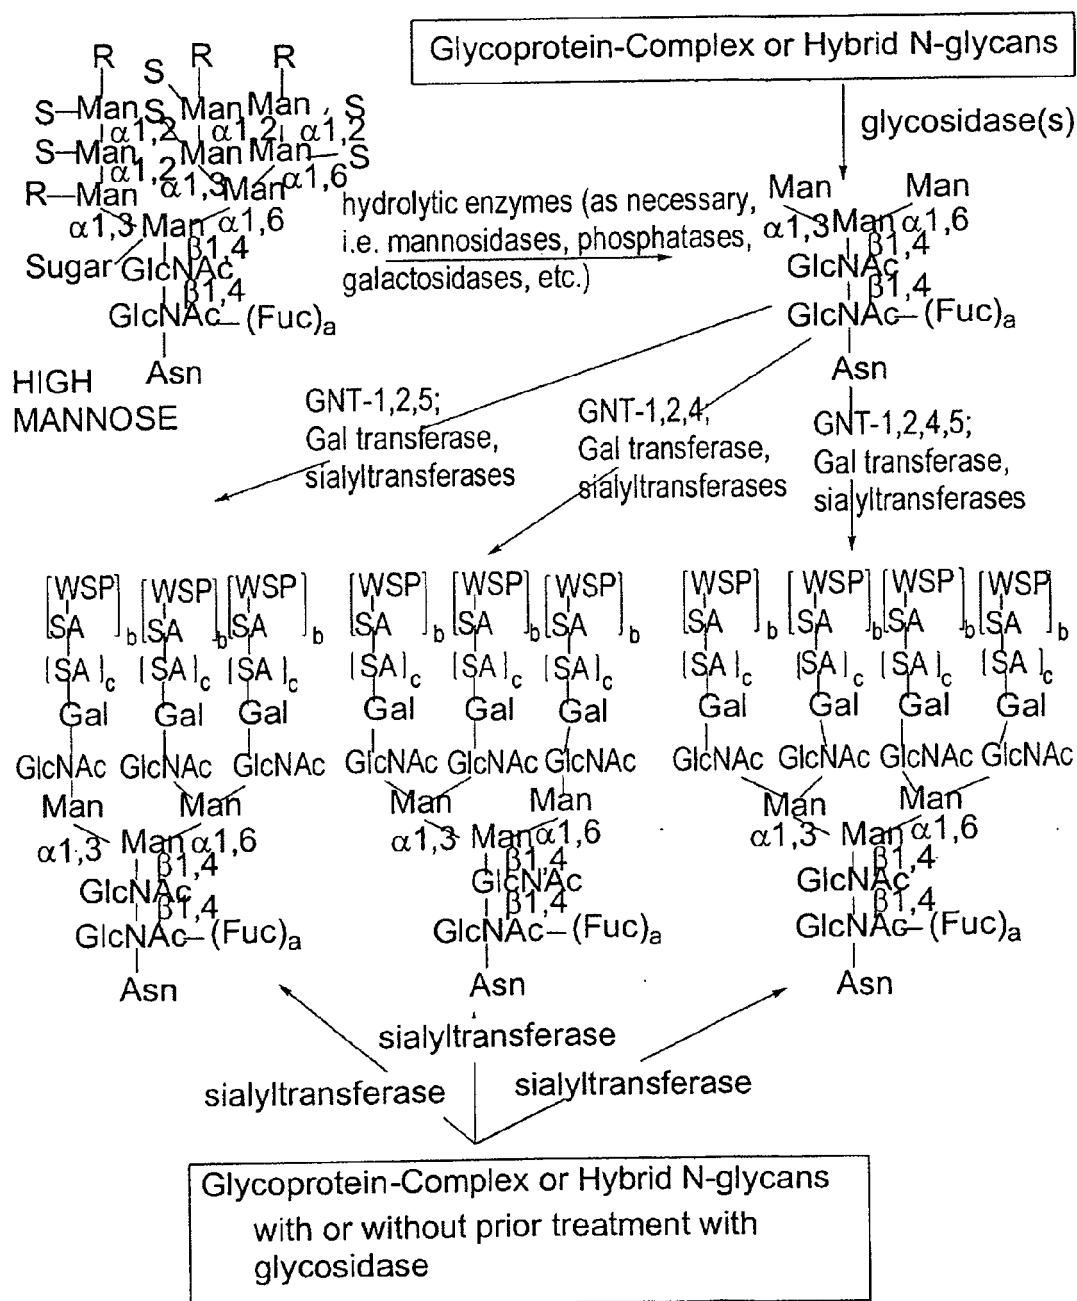 Glycoprotein-Complex or Hybrid N-glycans
glycosidase(s)
R S R R
S–Man S Man Man S
α1,2 α1,2 α1,2
S–Man Man Man–S
α1,2 α1,3 α1,6
R–Man Man
α1,3 Man α1,6
β1,4
Sugar GlcNAc
β1,4
GlcNAc–(Fuc)a
Asn
HIGH
MANNOSE
hydrolytic enzymes (as necessary,
i.e. mannosidases, phosphatases,
galactosidases, etc.)
Man Man
α1,3 Man α1,6
β1,4
GlcNAc
β1,4
GlcNAc–(Fuc)a
Asn
GNT-1,2,5;
Gal transferase,
sialyltransferases
GNT-1,2,4;
Gal transferase,
sialyltransferases
GNT-1,2,4,5;
Gal transferase,
sialyltransferases
[WSP [WSP [WSP
SA]b SA]b SA]b
[SA]c [SA]c [SA]c
Gal Gal Gal
GlcNAc GlcNAc GlcNAc
Man Man
α1,3 Man α1,6
β1,4
GlcNAc
β1,4
GlcNAc–(Fuc)a
Asn
[WSP [WSP [WSP
SA]b SA]b SA]b
[SA]c [SA]c [SA]c
Gal Gal Gal
GlcNAc GlcNAc GlcNAc
Man Man
α1,3 Man α1,6
β1,4
GlcNAc
β1,4
GlcNAc–(Fuc)a
Asn
[WSP [WSP [WSP [WSP
SA]b SA]b SA]b SA]b
[SA]c [SA]c [SA]c [SA]c
Gal Gal Gal Gal
GlcNAc GlcNAc GlcNAc GlcNAc
Man Man
α1,3 Man α1,6
β1,4
GlcNAc
β1,4
GlcNAc–(Fuc)a
Asn
sialyltransferase
sialyltransferase
sialyltransferase
Glycoprotein-Complex or Hybrid N-glycans
with or without prior treatment with
glycosidase